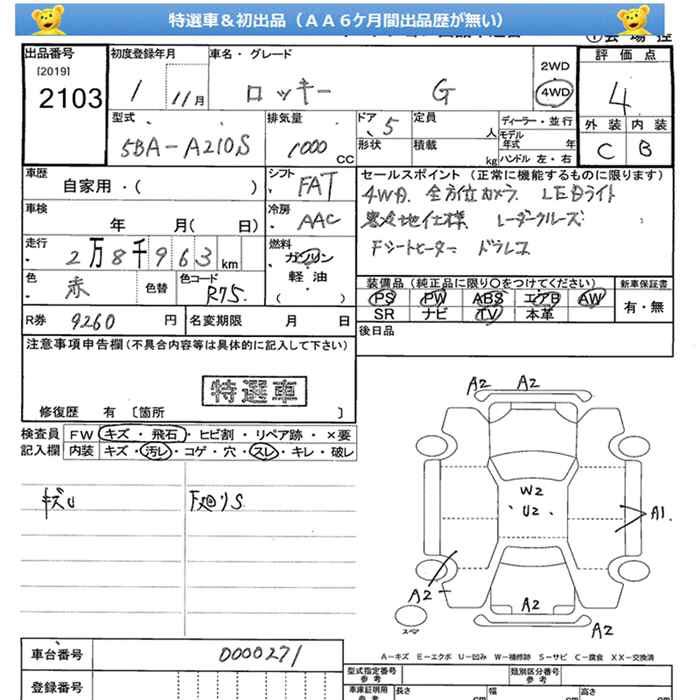 特選車&初出品（ＡＡ６ケ月間出品歴が無い）
出品番号 初度登録年月 車名・グレード 評価点
[2019] 2103 1 11月 ロッキー G 2WD 4WD 4
型式 排気量 ドア 定員 ディーラー・並行 外装 内装
5BA-A210S 1000 CC 5 人 モデル年式 年 C B
形状 積載 kg ハンドル 左・右
車歴 シフト セールスポイント（正常に機能するものに限ります）
自家用・( ) FAT 4WD. 全方位カメラ LEDライト
車検 冷房 寒冷地仕様 レーダークルーズ
年 月( 日) AAC Fシートヒーター ドラレコ
走行 燃料
2万8千963km ガソリン
軽・油
( )
色 色替 色コード 装備品（純正品に限り〇をつけてください） 新車保証書
赤 R75. PS PW ABS エアB AW 有・無
SR ナビ TV 本革
R券 9260 円 名変期限 月 日 後日品
注意事項申告欄(不具合内容等は具体的に記入して下さい)
特選車
修復歴 有 〔箇所 〕
検査員 FW キズ・飛石・ヒビ割・リペア跡・×要
記入欄 内装 キズ・汚レ・コゲ・穴・スレ・キレ・破レ
キズU 下廻りS
A2 A2
W2
U2
A1
A2
A2
A2
スペア
A-キズ E-エクボ U-凹み W-補修跡 S-サビ C-腐食 XX-交換済
車台番号 0000271
型式指定番号 参考 類別区分番号 参考
登録番号 車庫証明用 参考 長さ cm 幅 cm 高さ cm